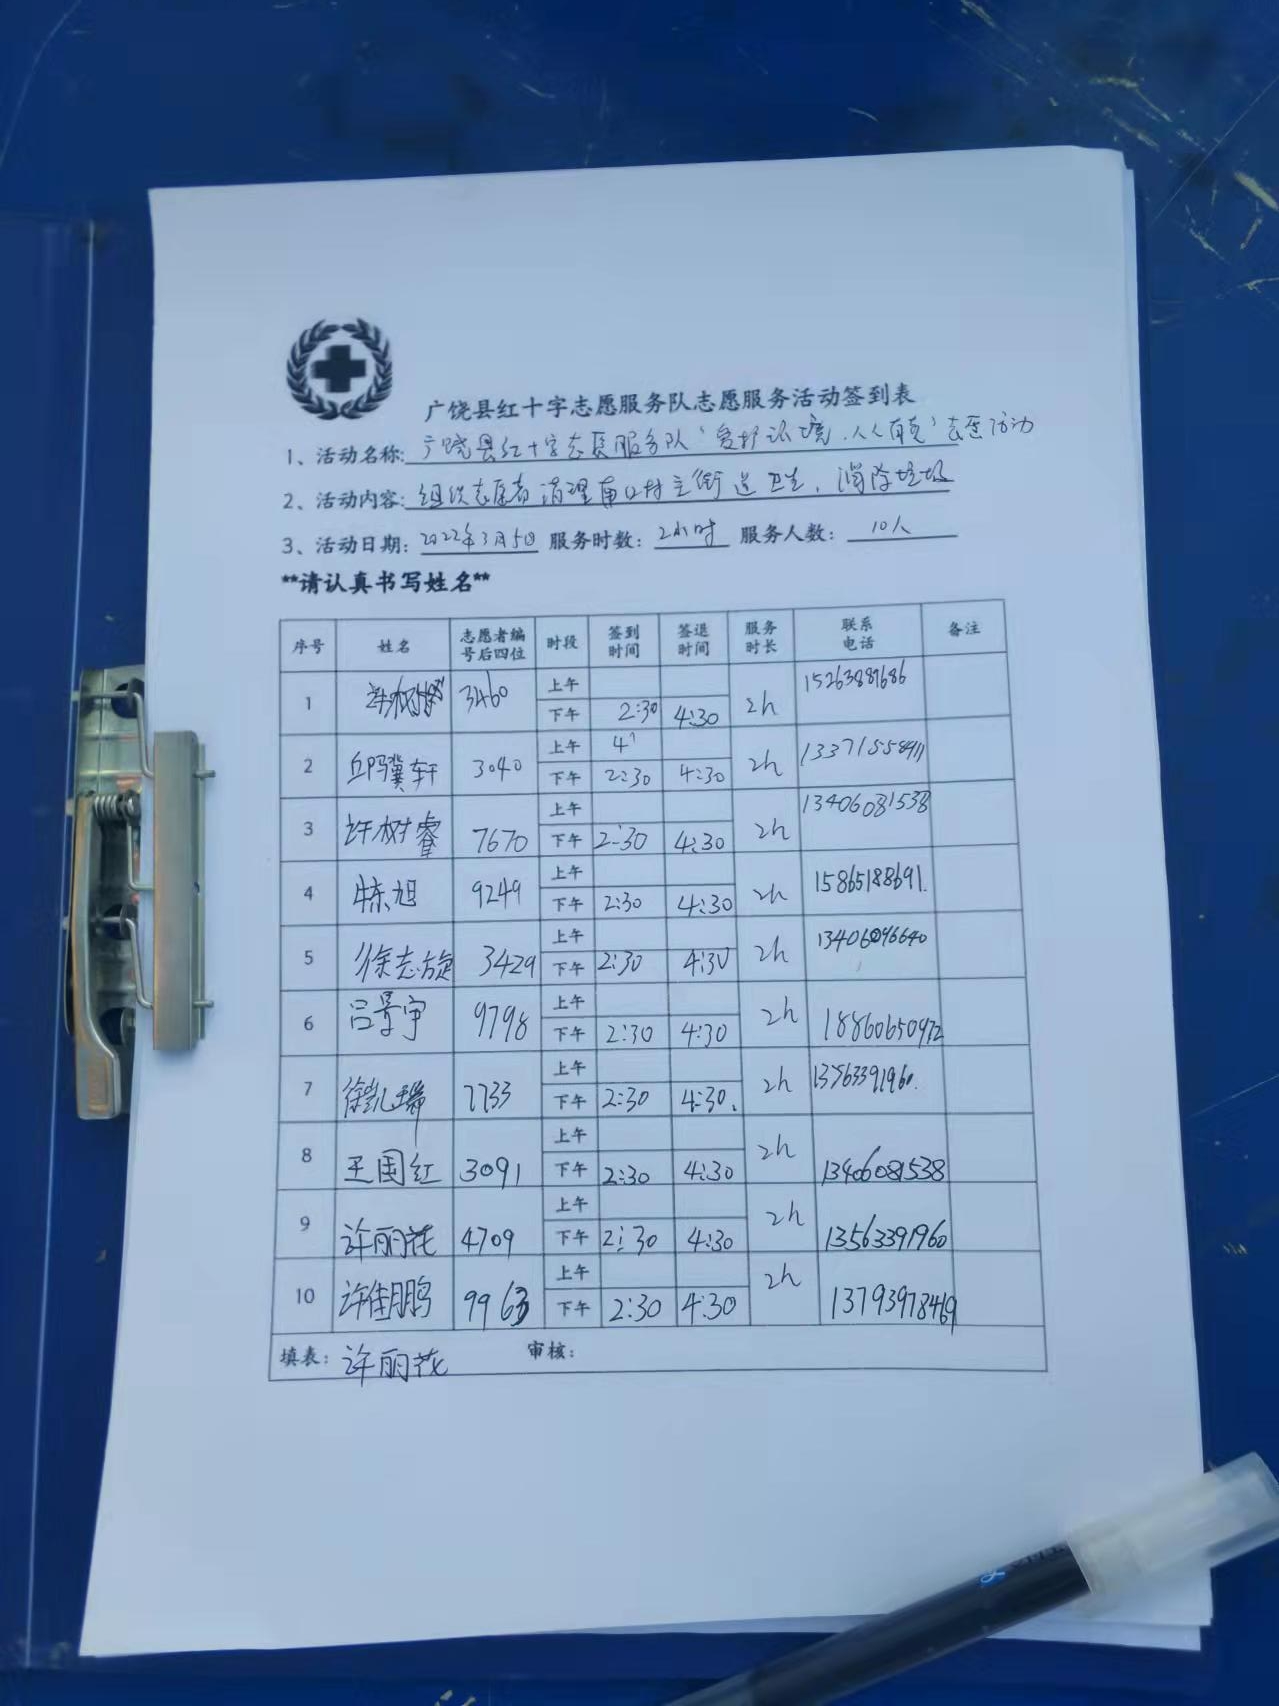 广饶县红十字志愿服务队志愿服务活动签到表
1、活动名称: 广饶县红十字志愿服务队“爱护环境,人人有责”志愿活动
2、活动内容: 组织志愿者清理南口村主街道卫生,消除垃圾
3、活动日期: 2022年3月5日 服务时数: 2小时 服务人数: 10人
**请认真书写姓名**
序号 姓名 志愿者编号后四位 时段 签到时间 签退时间 服务时长 联系电话 备注
1 3460 上午 2h
下午 2:30 4:30
2 3040 上午 2h
下午 2:30 4:30
3 许树睿 7670 上午 2h 13406081538
下午 2:30 4:30
4 旭 9249 上午 2h 15865188691.
下午 2:30 4:30
5 徐志旋 3429 上午 2h
下午 2:30 4:30
6 吕景宇 9798 上午 2h 18860650972
下午 2:30 4:30
7 徐凯瑞 7733 上午 2h
下午 2:30 4:30.
8 王国红 3091 上午 2h 13406081538
下午 2:30 4:30
9 许丽花 4709 上午 2h 13563391960
下午 2:30 4:30
10 许佳鹏 9963 上午 2h 13793978469
下午 2:30 4:30
填表: 许丽花 审核: